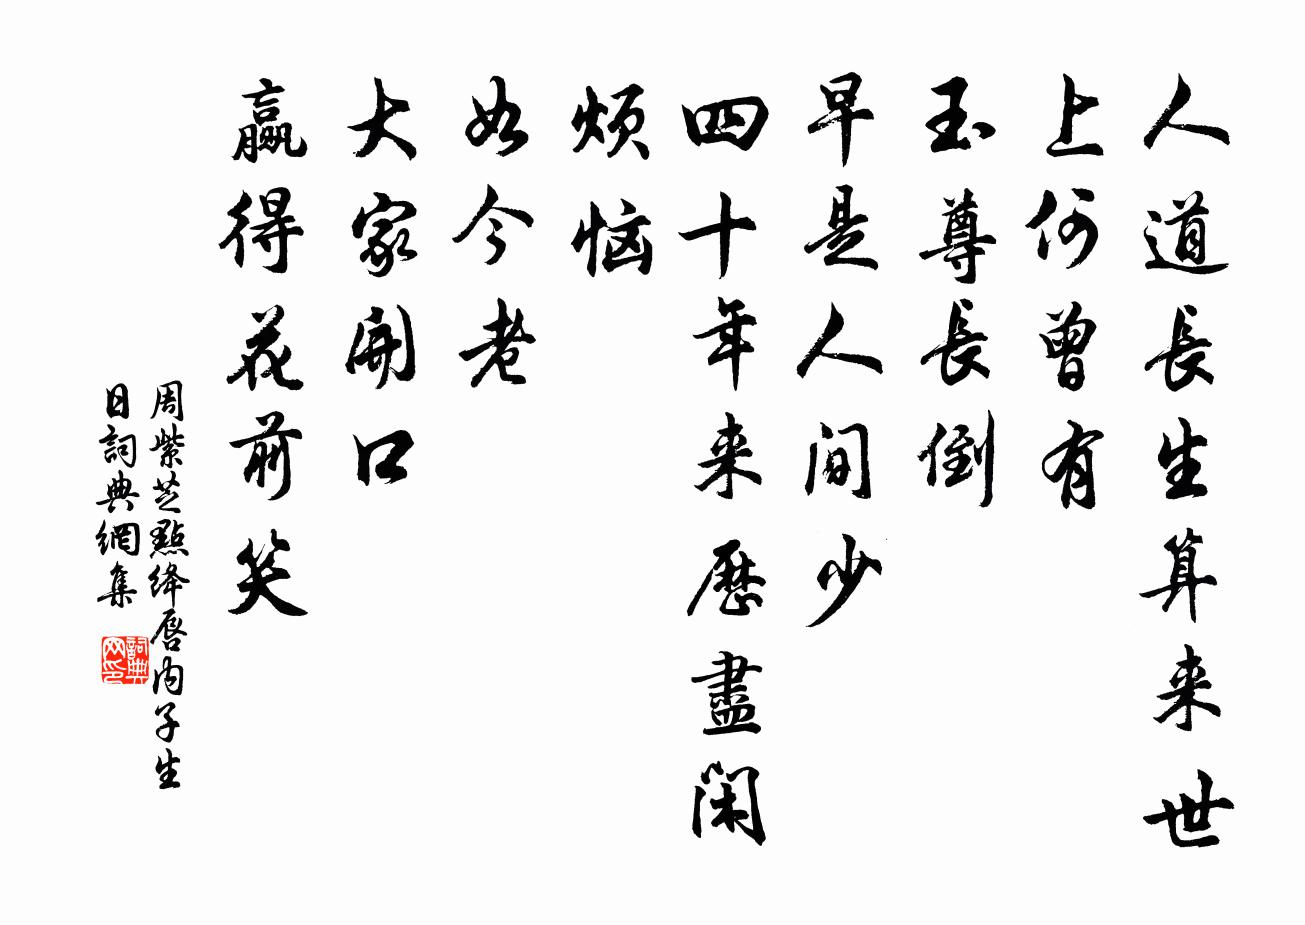 人道長生算来世
上何曾有
玉尊長倒
早是人间少
四十年来歷盡闲
烦恼
如今老
大家開口
赢得花前笑
周紫芝點绛唇内子生
日詞典網集
詞典
网印